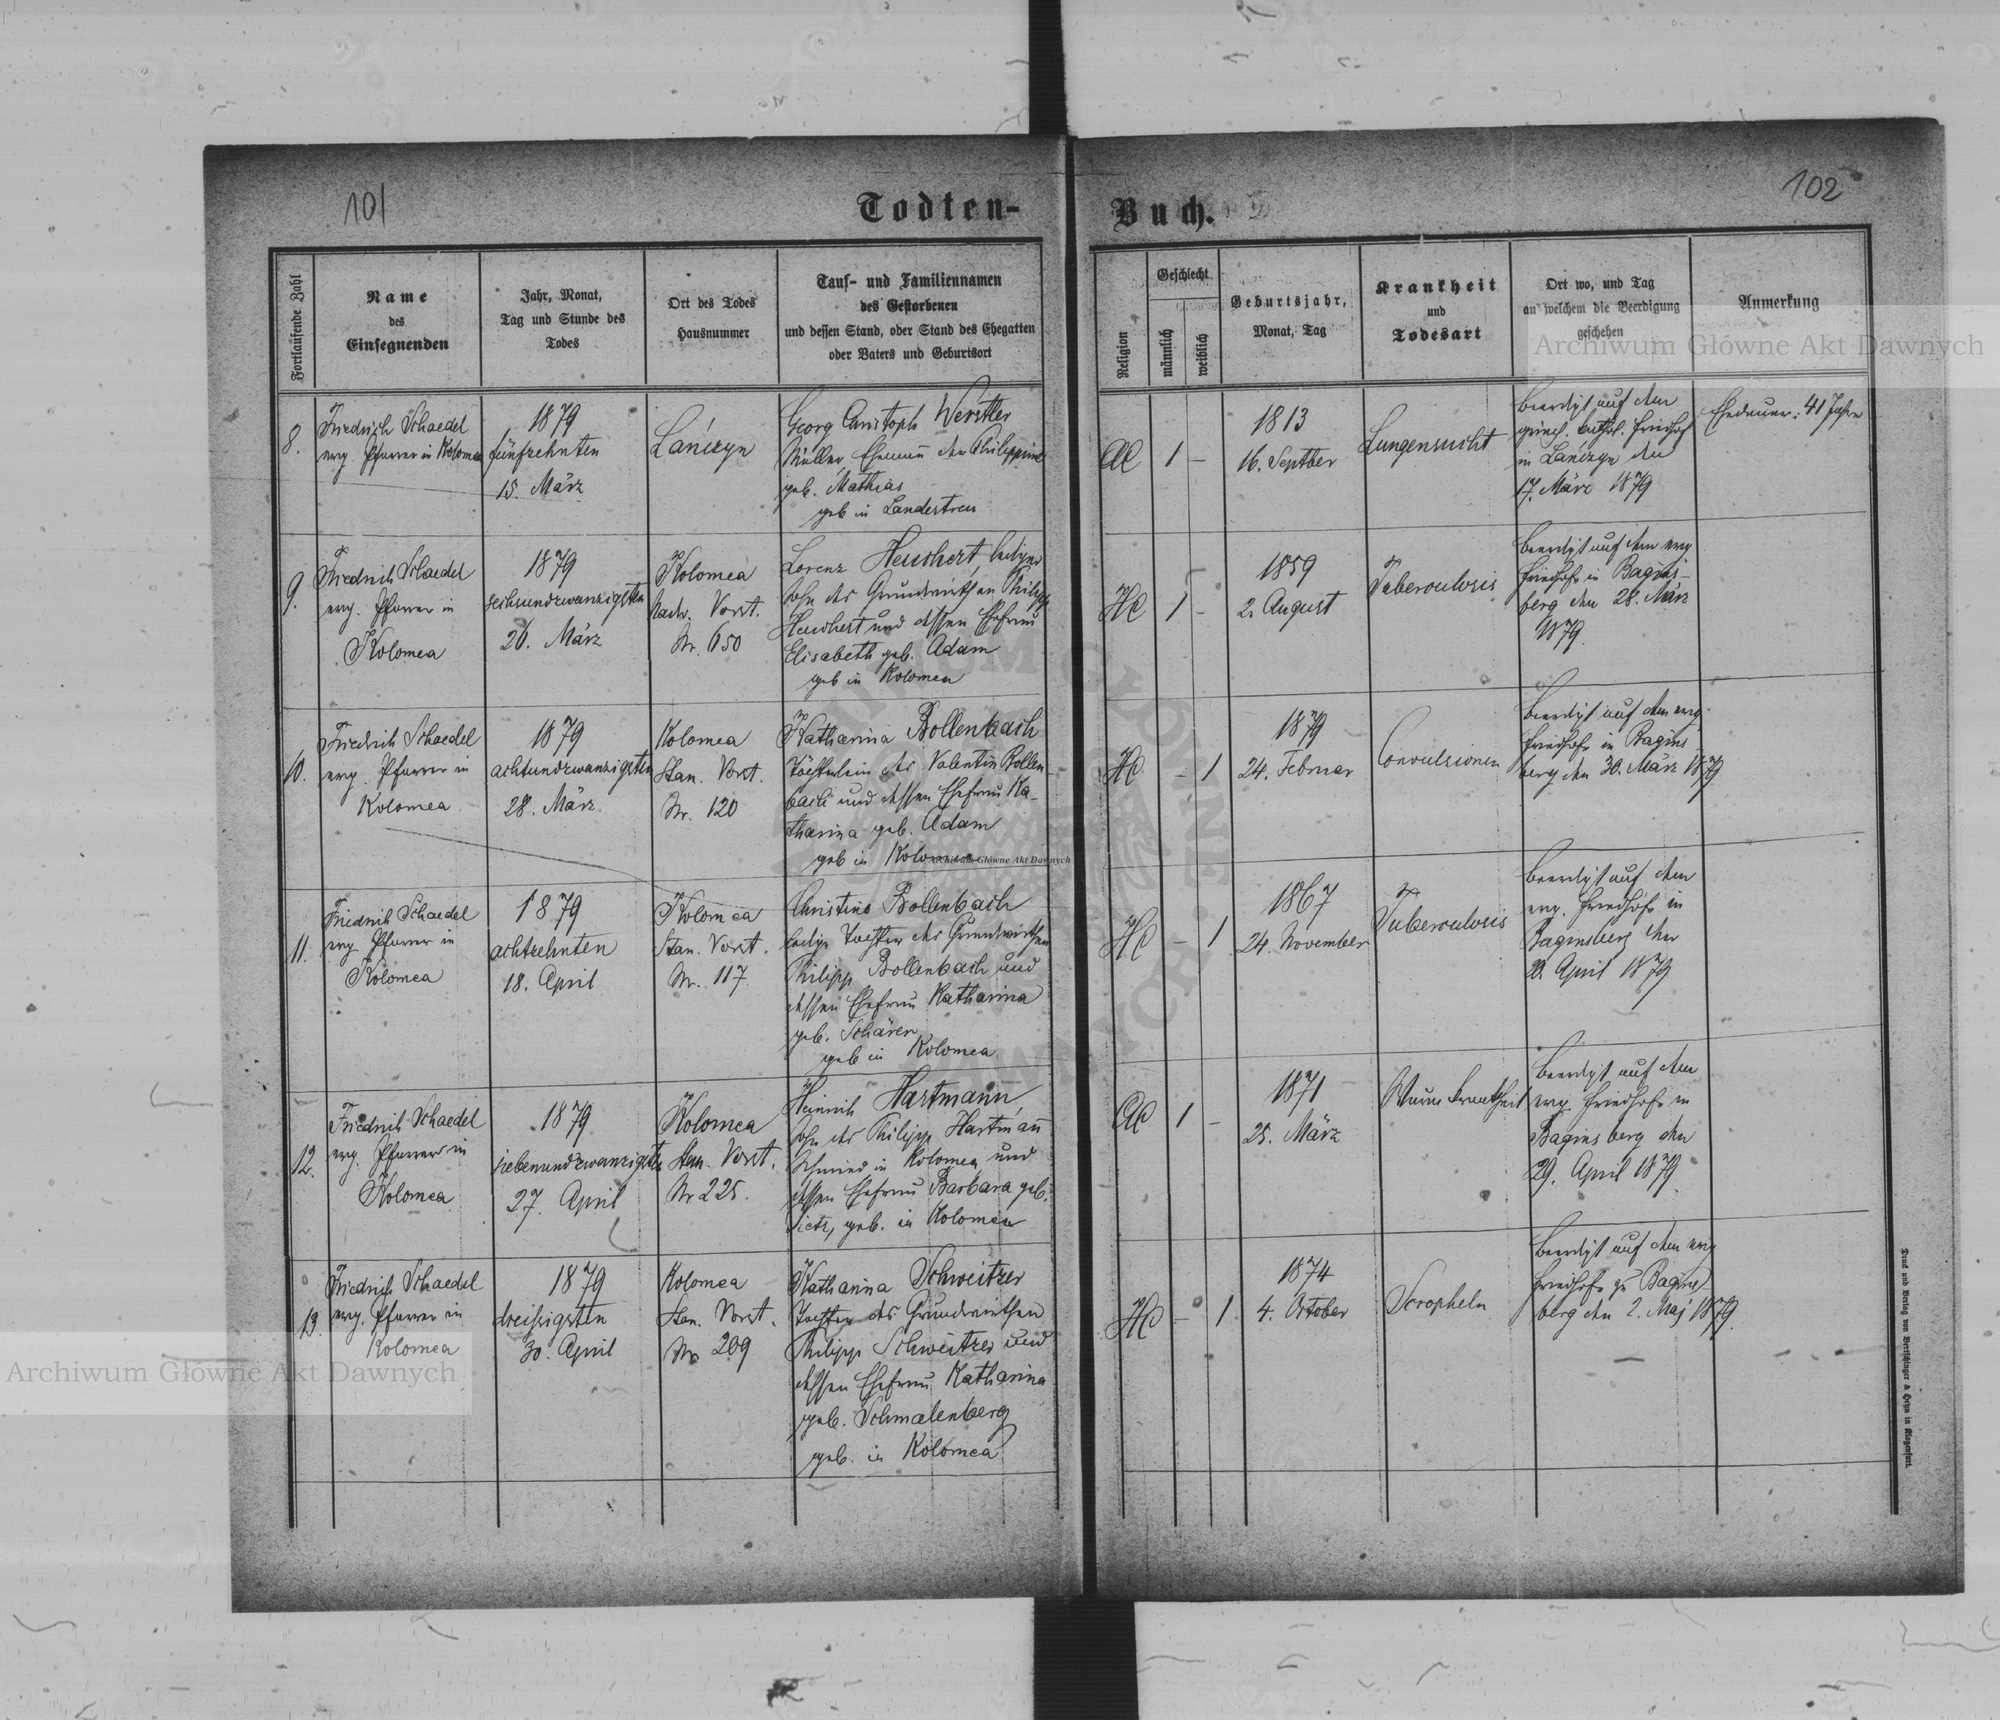 101
Todten-
Buch.
102
Fortlaufende Zahl
Name
des
Einsegnenden
Jahr, Monat,
Tag und Stunde des
Todes
Ort des Todes
Hausnummer
Tauf- und Familiennamen
des Gestorbenen
und dessen Stand, oder Stand des Ehegatten
oder Vaters und Geburtsort
Religion
Geschlecht
männlich
weiblich
Geburtsjahr,
Monat, Tag
Krankheit
und
Todesart
Ort wo, und Tag
an welchem die Beerdigung
geschehen
Anmerkung
Archiwum Główne Akt Dawnych
8.
Friedrich Schaedel
evg. Pfarrer in Kolomea
1879
fünfzehnten
15. März
Łánczyn
Georg Christoph Werstler
Müller, Ehemann der Philippine
geb. Mathias
geb in Landestreu
AC
1
-
1813
16. Septber
Lungensucht
Beerdigt auf dem
griech. kathol. Friedhof
in Łánczyn den
17. März 1879
Ehedauer: 41 Jahre
9.
Friedrich Schaedel
evg. Pfarrer in
Kolomea
1879
sechsundzwanzigsten
26. März
Kolomea
Nadw. Vorst.
Nr. 650
Lorenz Heuchert, lediger
Sohn des Grundwirthen Philipp
Heuchert und dessen Ehefrau
Elisabeth geb. Adam
geb in Kolomea
HC
1
-
1859
2. August
Tuberculosis
Beerdigt auf dem evg
Friedhofe in Bagins-
berg den 28. März
1879.
10.
Friedrich Schaedel
evg. Pfarrer in
Kolomea
1879
achtundzwanzigsten
28. März
Kolomea
Stan. Vorst.
Nr. 120
Katharina Bollenbach
Töchterlein des Valentin Bollen-
bach und dessen Ehefrau Ka-
tharina geb. Adam
geb in Kolomea
Archiwum Główne Akt Dawnych
HC
-
1
1879
24. Februar
Convulsionen
Beerdigt auf dem evg.
Friedhofe in Bagins
berg den 30. März 1879
11.
Friedrich Schaedel
evg. Pfarrer in
Kolomea
1879
achtzehnten
18. April
Kolomea
Stan. Vorst.
Nr. 117
Christine Bollenbach
ledige Tochter des Grundwirthen
Philipp Bollenbach und
dessen Ehefrau Katharina
geb. Schärer
geb in Kolomea
HC
-
1
1867
24. November
Tuberculosis
Beerdigt auf dem
evg. Friedhofe in
Baginsberg den
20. April 1879
12.
Friedrich Schaedel
evg. Pfarrer in
Kolomea
1879
siebenundzwanzigsten
27. April
Kolomea
Stan. Vorst.
Nr 225.
Heinrich Hartmann,
Sohn des Philipp Hartmann
Schmied in Kolomea und
dessen Ehefrau Barbara geb.
geb. in Kolomea
AC
1
-
1871
25. März
Wurmkrankheit
Beerdigt auf dem
evg Friedhofe in
Baginsberg den
29. April 1879
13.
Friedrich Schaedel
evg. Pfarrer in
Kolomea
1879
dreißigsten
30. April
Kolomea
Stan. Vorst.
Nr. 209
Katharina Schweitzer
Tochter des Grundwirthen
Philipp Schweitzer und
dessen Ehefrau Katharina
geb. Schmalenberg
geb. in Kolomea
HC
-
1
1874
4. October
Scropheln
Beerdigt auf dem evg
Friedhofe zu Bagins
berg den 2. Maj 1879.
Archiwum Główne Akt Dawnych